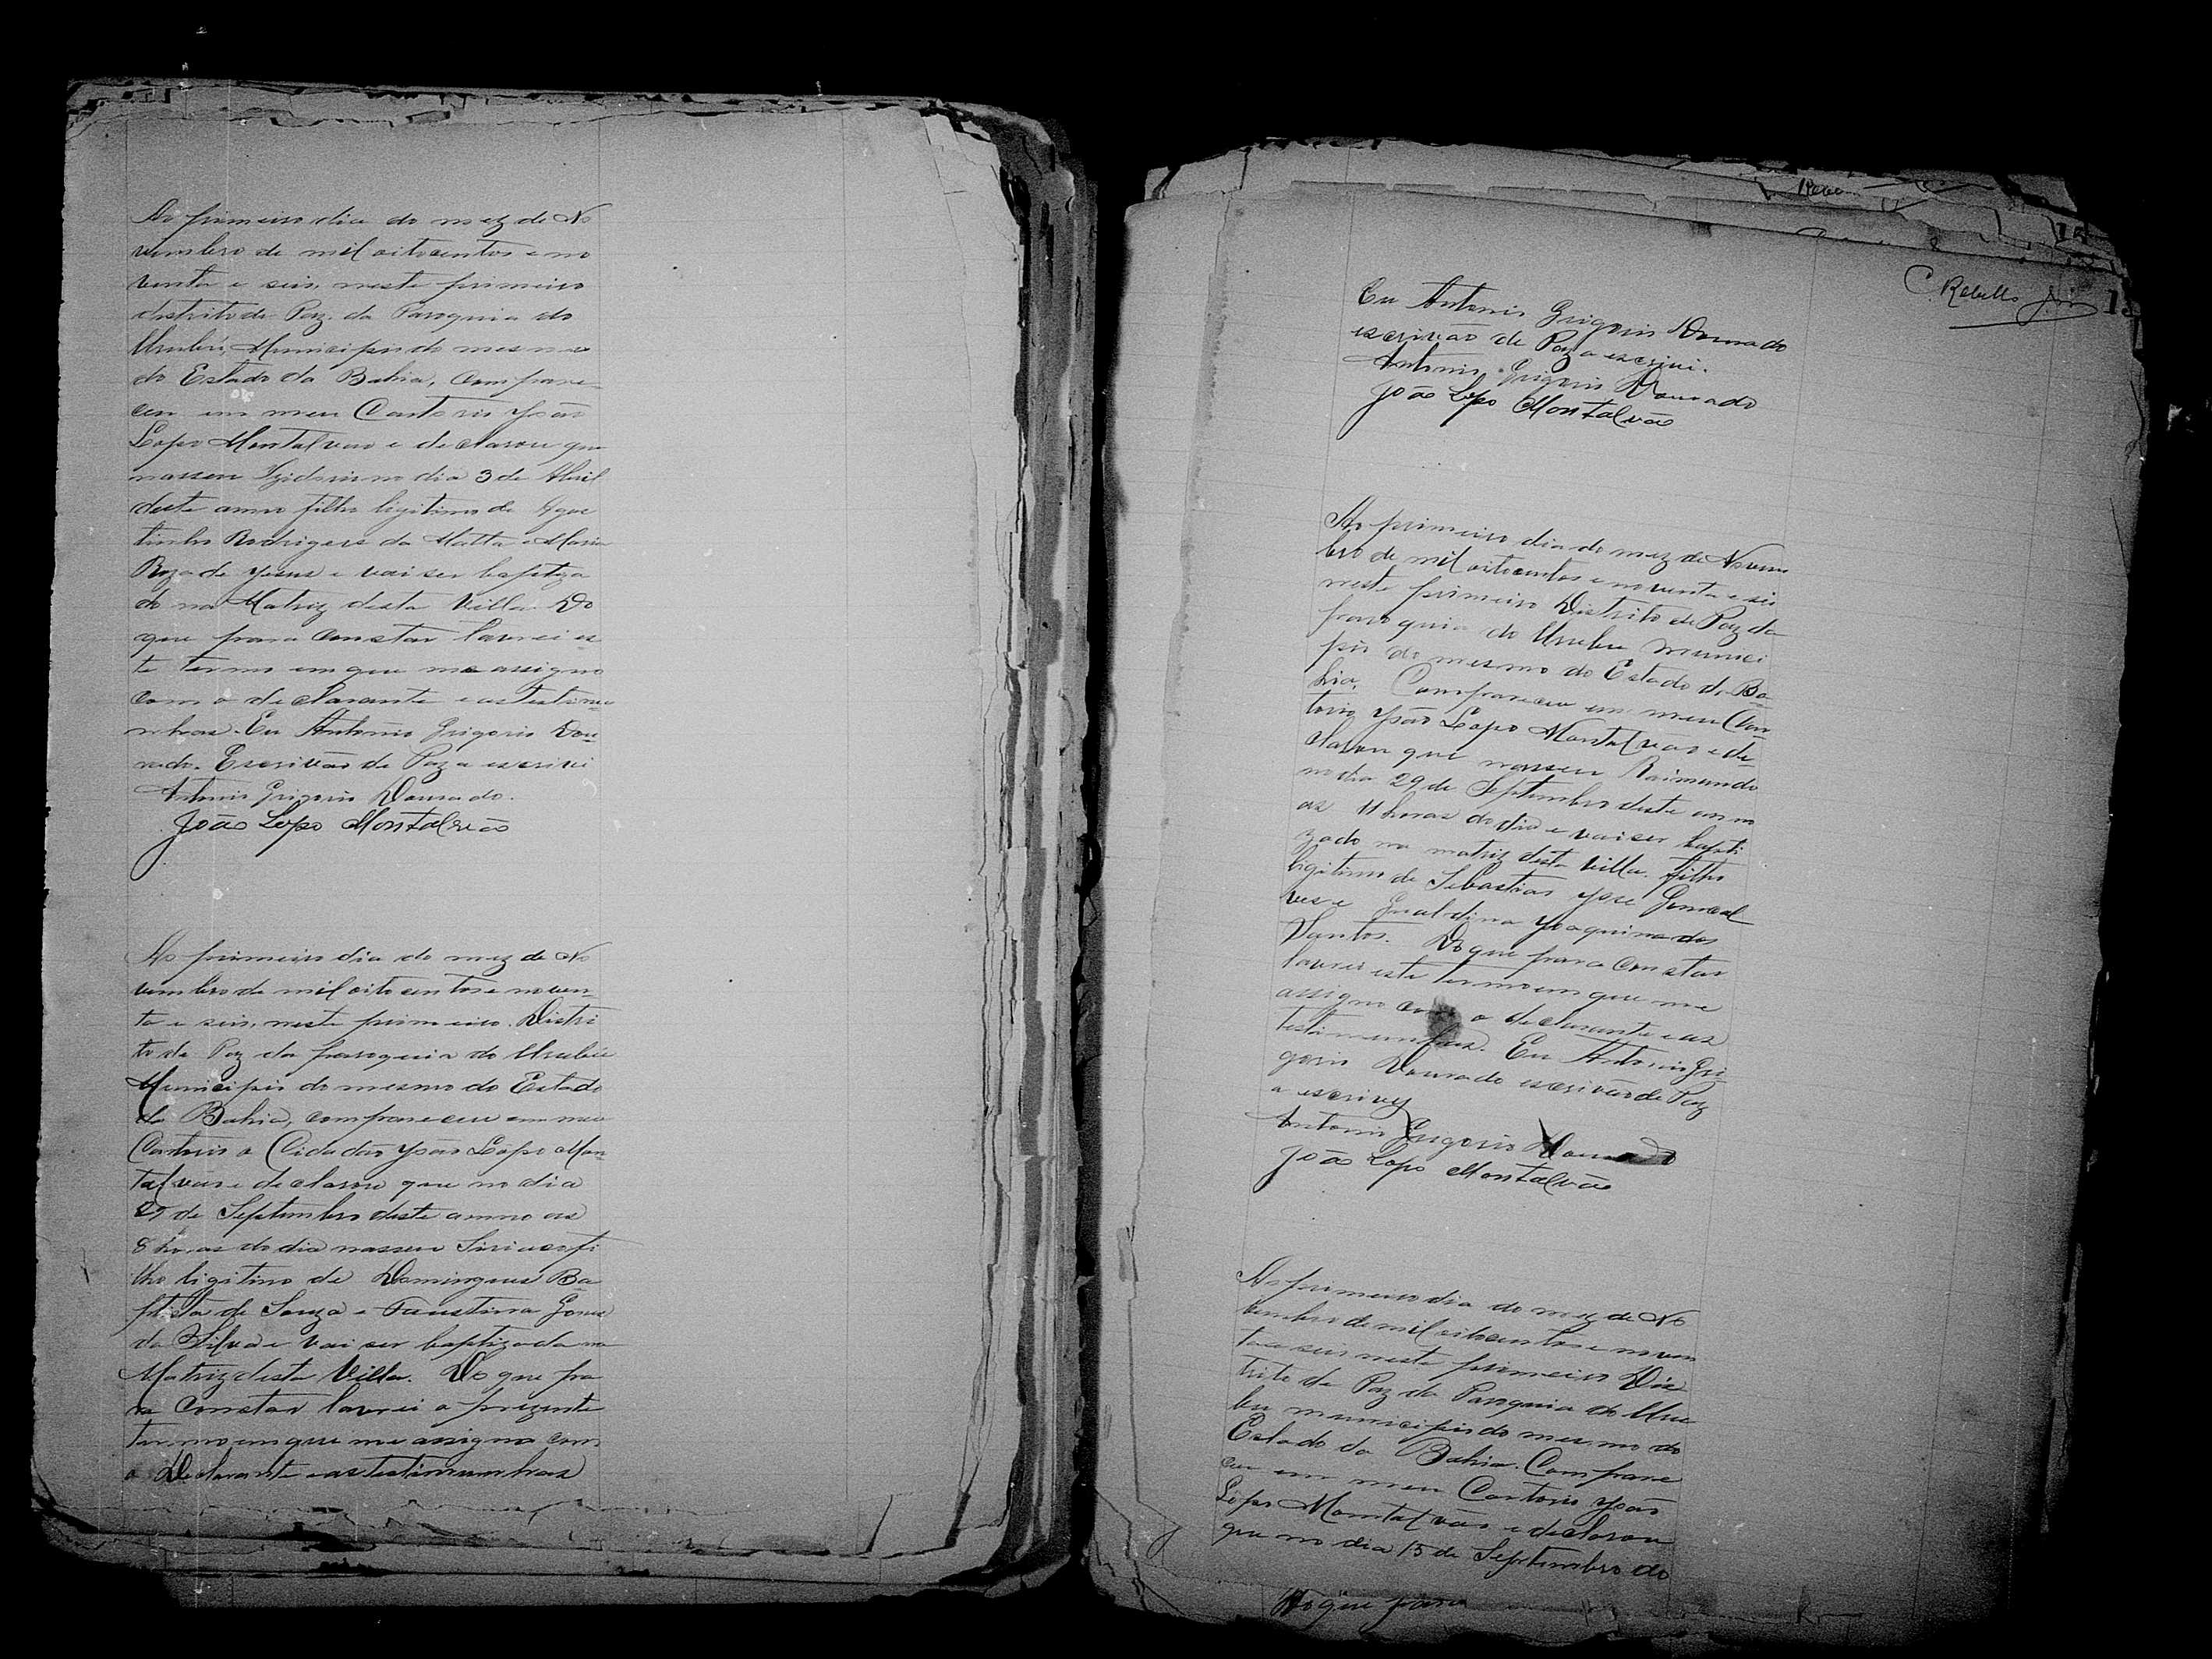 Ao primeiro dia do mez de No
vembro de mil oitocentos e no
venta e seis, neste primeiro
districto de Paz da Paroquia do
Urubú, Municipio do mesmo
do Estado da Bahia, compare
ceu em meu Cartorio João
Lopo Montalvao e declarou que
nasseu Izidorio no dia 3 de Abril
deste anno filho ligitimo de Agos
tinho Rodrigues da Matta e Maria
Roza de Jesus e vai ser baptiza
do na Matriz desta Villa. Do
que para constar lavrei es
te termo em que me assigno
com o declarante e as testimu
nhas. Eu Antonio Grigorio Dou
rado. Escrivão de Paz a escrivi
Antonio Grigorio Dourado.
João Lopo Montalvão
Ao primeiro dia do mez de No
vembro de mil oito centos e noven
ta e seis, neste primeiro. Distri
to de Paz da paroquia do Urubú
Municipio do mesmo do Estado
da Bahia, compareceu em meu
Cartorio o Cidadão João Lopo Mon
talvão e declarou que no dia
de Septembro deste anno as
8 horas do dia nasseu fi
lho ligitimo de Domingues Ba
ptista de Souza e Faustina Gomes
da Silva e vai ser baptizado na
Matriz desta Villa. Do que pa
ra constar lavrei o prezente
termo em que me assigno com
o Declarante e as testimunhas
C. Rebello
Eu Antonio Grigorio Dourado
escrivão de Paz a escrivi.
Antonio Grigorio Dourado
João Lopo Montalvão
Ao primeiro dia do mez de Novem
bro de mil oitocentos e noventa e seis
neste primeiro Distrito de Paz da
paroquia do Urubu Munici
pio do mesmo do Estado da Ba
hia. Compareceu em meu Car
torio João Lopo Montalvão e de
clarou que nasseu Raimundo
no dia 29 de Septembro deste anno
as 11 horas do dia e vai ser bapti
zado na matriz desta Villa. filho
ligitimo de Sebastião Jose Goncal
ves e Gualdina Joaquina dos
Santos. Do que para constar
lavrei este termo em que me
assigno com o declarante e as
testimunhas. Eu Antonio Gri
gorio Dourado escrivão de Paz
a escrivy
Antonio Grigorio Dourado
João Lopo Montalvão
Ao primeiro dia do mez de No
vembro de mil oitocentos e noven
ta e seis neste primeiro Dis
trito de Paz da Paroquia do Uru
bu municipio do mesmo do
Estado da Bahia. Compare
ceu em meu Cartorio João
Lopo Montalvão e declarou
que no dia 15 de Septembro do
Do que para